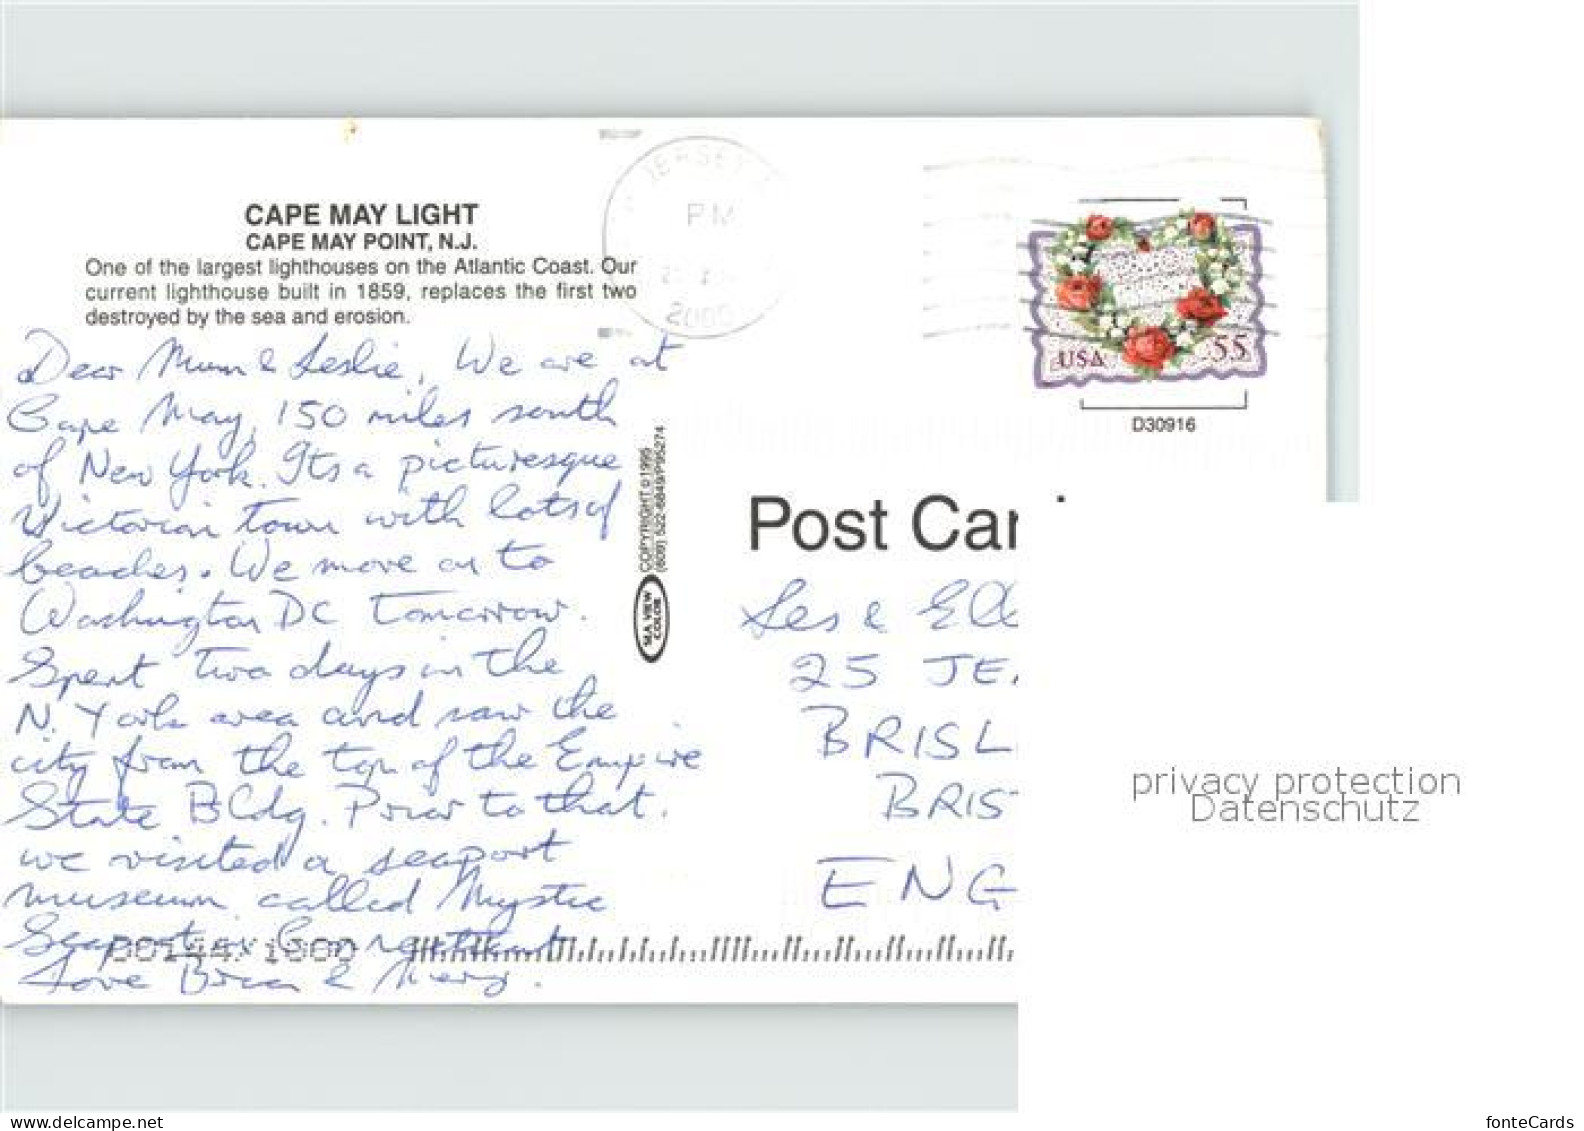 CAPE MAY LIGHT
CAPE MAY POINT, N.J.
One of the largest lighthouses on the Atlantic Coast. Our
current lighthouse built in 1859, replaces the first two
destroyed by the sea and erosion.
Dear Mum & Leslie, We are at
Cape May, 150 miles south
of New York. Its a picturesque
Victorian town with lots of
beaches. We move on to
Washington DC tomorrow.
Spent two days in the
N. York area and saw the
city from the top of the Empire
State Bldg. Prior to that
we visited a seaport
museum called Mystic
Seaport, Connecticut
Love Brian & Mary.
00144 1000
COPYRIGHT 1995
(609) 522-6849/P95274
SEA VIEW
COLOR
JERSEY
PM
2000
USA 55
D30916
Post Car
Les & Ell
25 JE
BRISL
BRIS
ENG
privacy protection
Datenschutz
www.delcampe.net
fonteCards